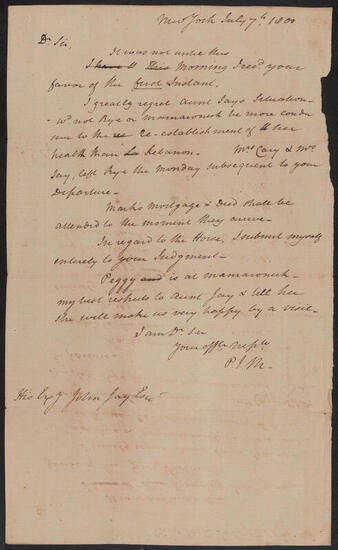 New York July 7th 1800
Dr Sir,
It was not until this
I have this Morning I recd your
favor of the first Instant.
I greatly regret Aunt Jays Situation
wd not Rye or Mamaroneck be more condu
sive to the re-establishment of her
health than Lebanon. Mrs Cary & Mr
Jay, left Rye the Monday subsequent to your
departure.
Mark's Mortgage & Deed shall be
attended to the moment they arrive.
In regard to the Horse, I submit myself
entirely to your Judgment.
Peggy and is at Mamaroneck
my best respects to Aunt Jay & tell her
she will make us very happy by a visit.
I am Dr Sir
Your affte Neph
P. J. M.
His Exy John Jay Esqr